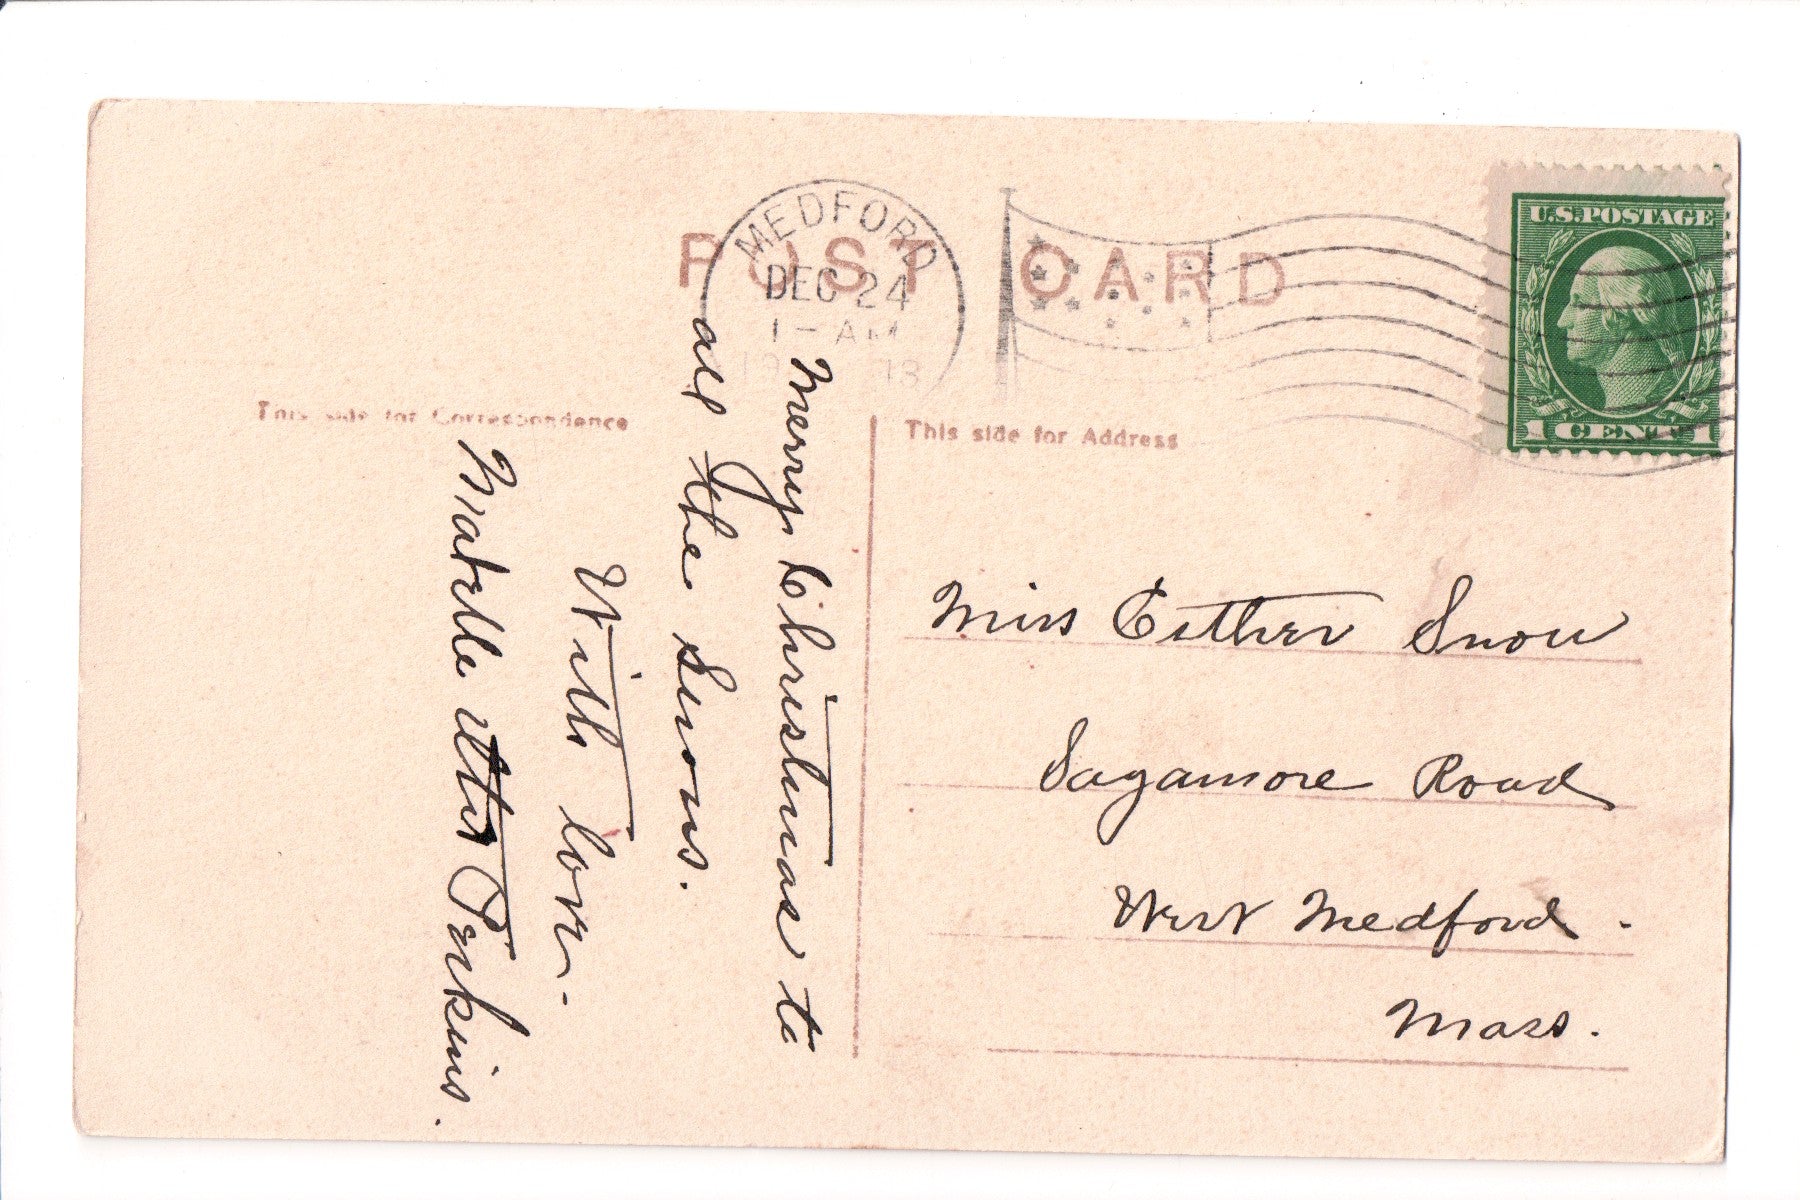 POST CARD
MEDFORD
DEC 24
1 - AM
U.S. POSTAGE
1 CENT 1
This side for Correspondence
This side for Address
Merry Christmas to
all the Snows.
With love.
Perkins.
Miss Esther Snow
Sagamore Road
West Medford.
Mass.